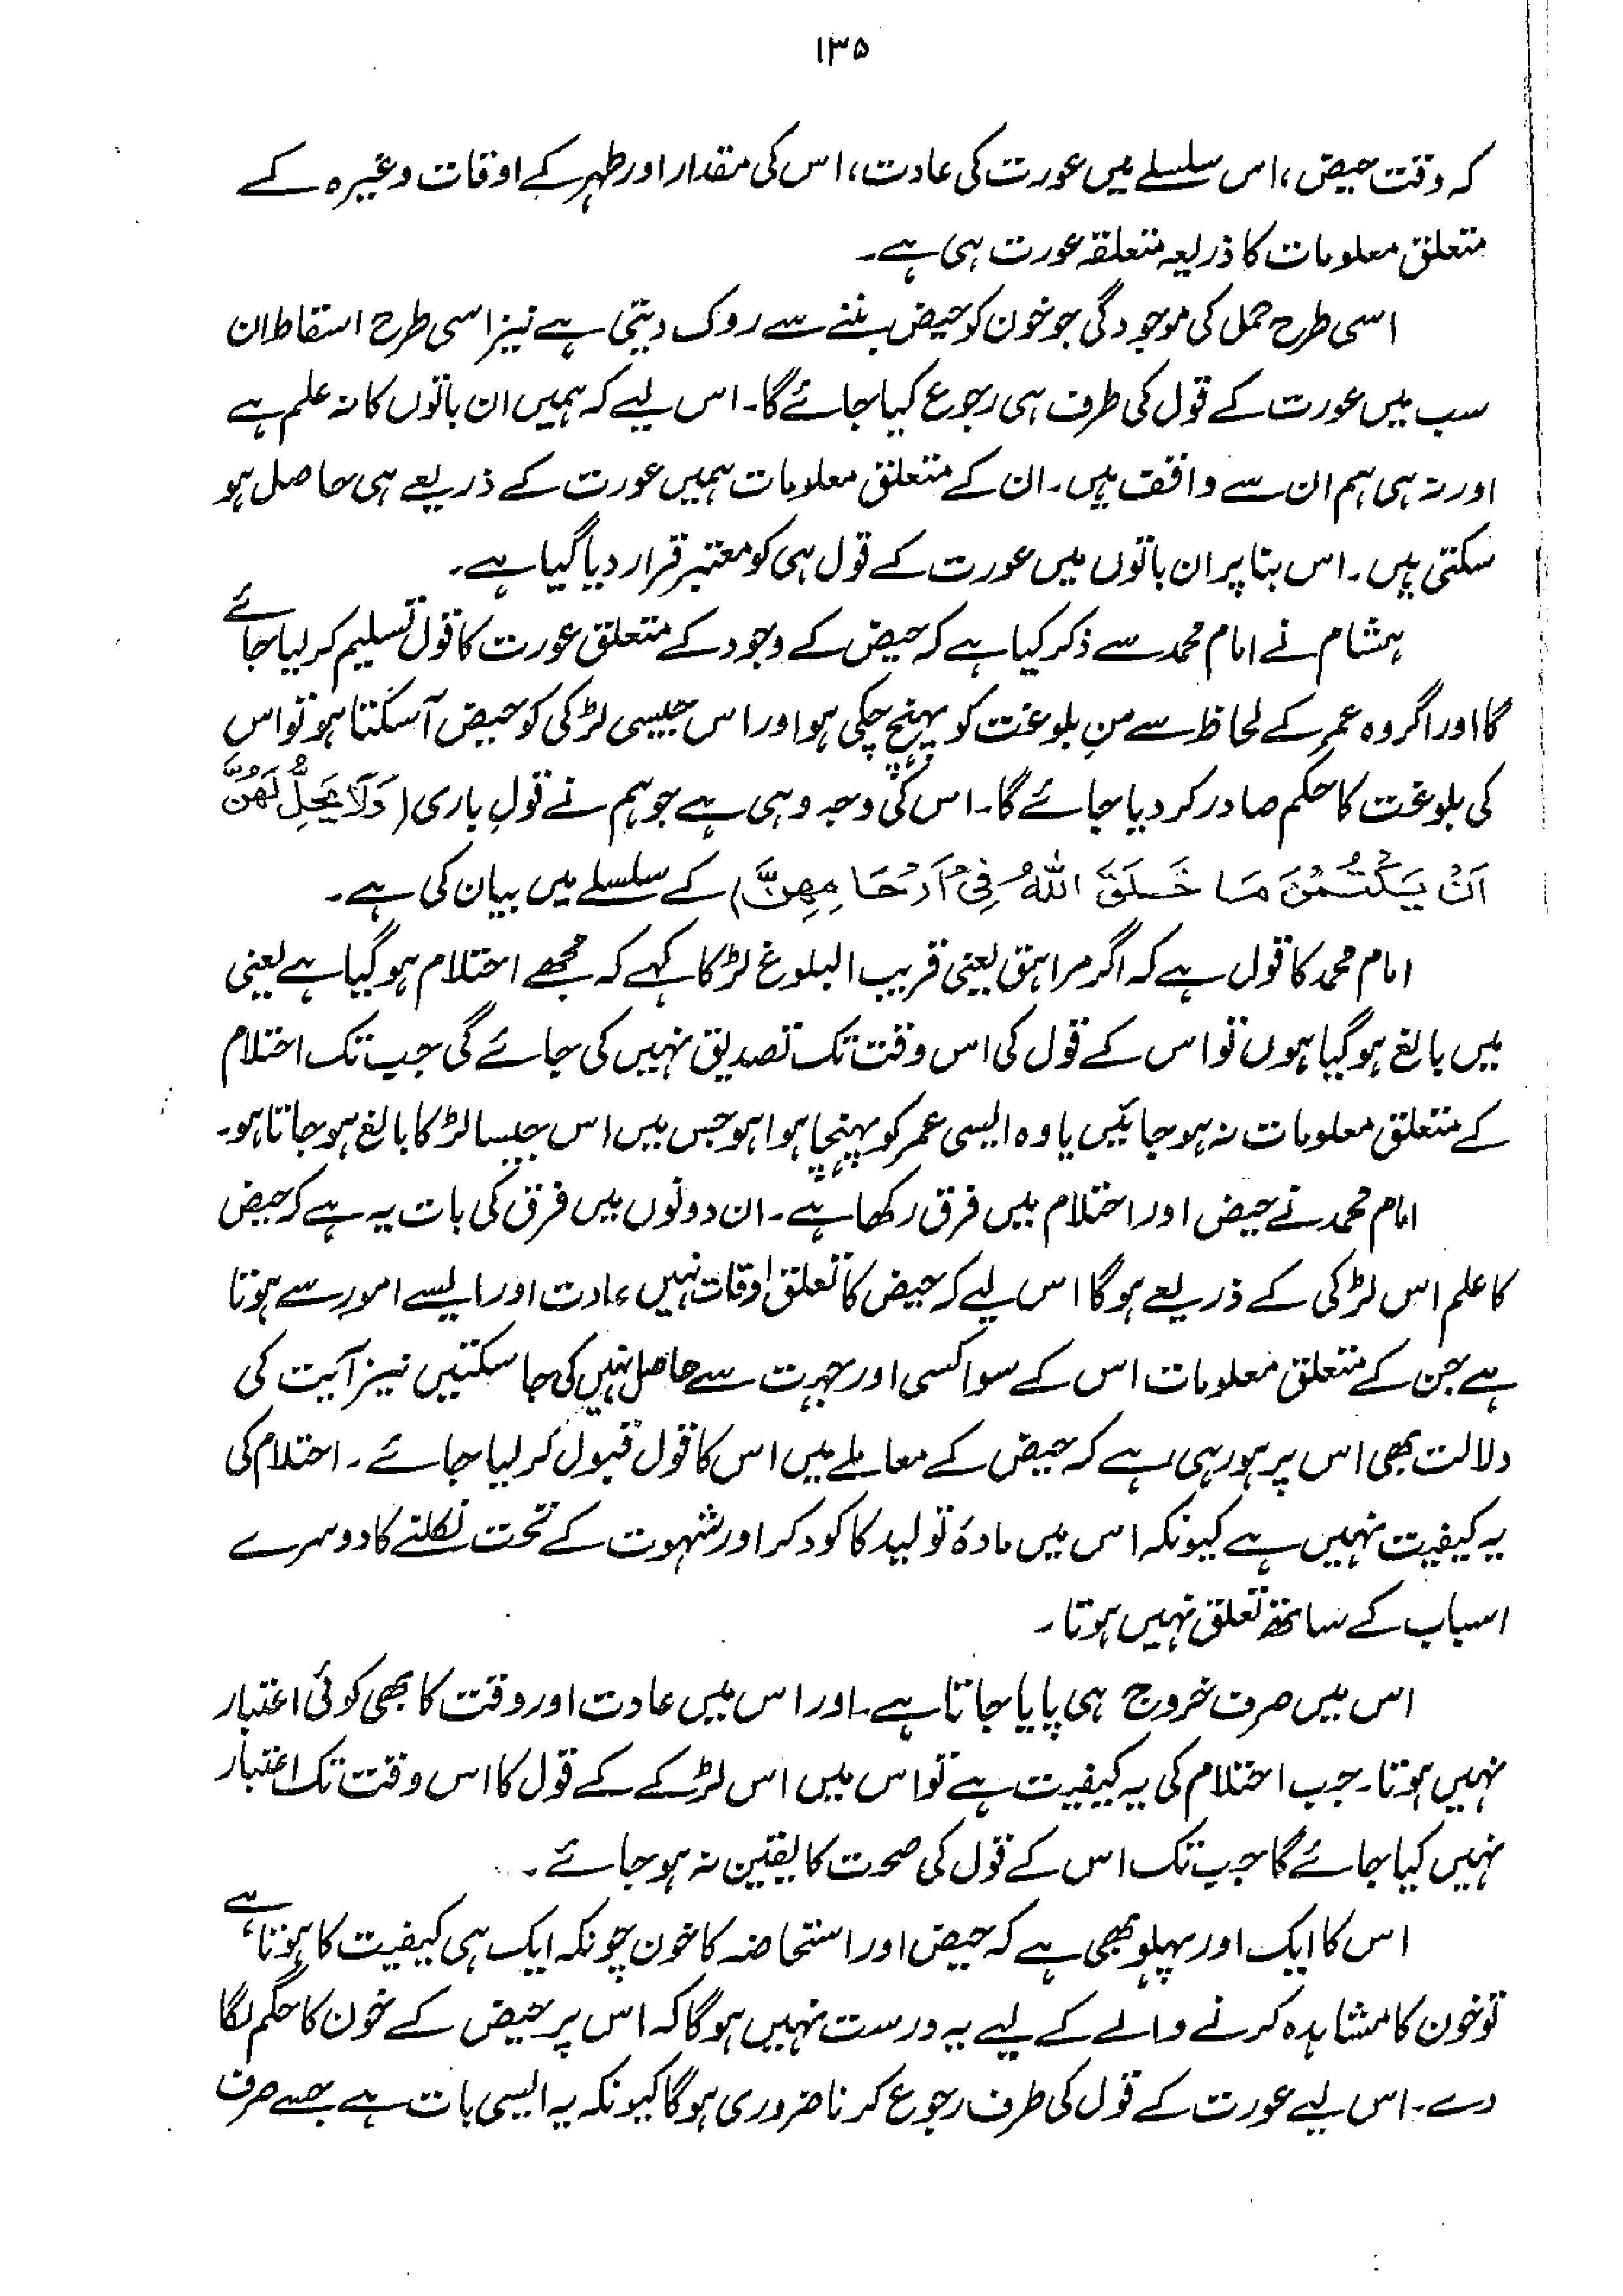 ۱۳۵
کہ وقت حیض، اس سلسلے میں عورت کی عادت، اس کی مقدار اور طہر کے اوقات وغیرہ کے
متعلق معلومات کا ذریعہ متعلقہ عورت ہی ہے۔
اسی طرح حمل کی موجودگی جو خون کو حیض بننے سے روک دیتی ہے نیز اسی طرح اسقاط ان
سب میں عورت کے قول کی طرف ہی رجوع کیا جائے گا۔ اس لیے کہ ہمیں ان باتوں کا نہ علم ہے
اور نہ ہی ہم ان سے واقف ہیں۔ ان کے متعلق معلومات ہمیں عورت کے ذریعے ہی حاصل ہو
سکتی ہیں۔ اس بنا پر ان باتوں میں عورت کے قول ہی کو معتبر قرار دیا گیا ہے۔
ہشام نے امام محمد سے ذکر کیا ہے کہ حیض کے وجود کے متعلق عورت کا قول تسلیم کر لیا جائے
گا اور اگر وہ عمر کے لحاظ سے سنِ بلوغت کو پہنچ چکی ہو اور اس جیسی لڑکی کو حیض آ سکتا ہو تو اس
کی بلوغت کا حکم صادر کر دیا جائے گا۔ اس کی وجہ وہی ہے جو ہم نے قولِ باری (وَلَا يَحِلُّ لَهُنَّ
اَنْ يَكْتُمْنَ مَا خَلَقَ اللّٰهُ فِيْ اَرْحَامِهِنَّ) کے سلسلے میں بیان کی ہے۔
امام محمد کا قول ہے کہ اگر مراہق یعنی قریب البلوغ لڑکا کہے کہ مجھے احتلام ہو گیا ہے یعنی
میں بالغ ہو گیا ہوں تو اس کے قول کی اس وقت تک تصدیق نہیں کی جائے گی جب تک احتلام
کے متعلق معلومات نہ ہو جائیں یا وہ ایسی عمر کو پہنچا ہوا ہو جس میں اس جیسا لڑکا بالغ ہو جاتا ہو۔
امام محمد نے حیض اور احتلام میں فرق رکھا ہے۔ ان دونوں میں فرق کی بات یہ ہے کہ حیض
کا علم اس لڑکی کے ذریعے ہو گا اس لیے کہ حیض کا تعلق اوقات نہیں عادت اور ایسے امور سے ہوتا
ہے جن کے متعلق معلومات اس کے سوا کسی اور جہت سے حاصل نہیں کی جا سکتیں نیز آیت کی
دلالت بھی اس پر ہو رہی ہے کہ حیض کے معاملے میں اس کا قول قبول کر لیا جائے۔ احتلام کی
یہ کیفیت نہیں ہے کیونکہ اس میں مادۂ تولید کا کود کر اور شہوت کے تحت نکلنے کا دوسرے
اسباب کے ساتھ تعلق نہیں ہوتا۔
اس میں صرف خروج ہی پایا جاتا ہے۔ اور اس میں عادت اور وقت کا بھی کوئی اعتبار
نہیں ہوتا۔ جب احتلام کی یہ کیفیت ہے تو اس میں اس لڑکے کے قول کا اس وقت تک اعتبار
نہیں کیا جائے گا جب تک اس کے قول کی صحت کا یقین نہ ہو جائے۔
اس کا ایک اور پہلو بھی ہے کہ حیض اور استحاضہ کا خون چونکہ ایک ہی کیفیت کا ہوتا ہے،
تو خون کا مشاہدہ کرنے والے کے لیے یہ درست نہیں ہو گا کہ اس پر حیض کے خون کا حکم لگا
دے۔ اس لیے عورت کے قول کی طرف رجوع کرنا ضروری ہو گا کیونکہ یہ ایسی بات ہے جسے صرف